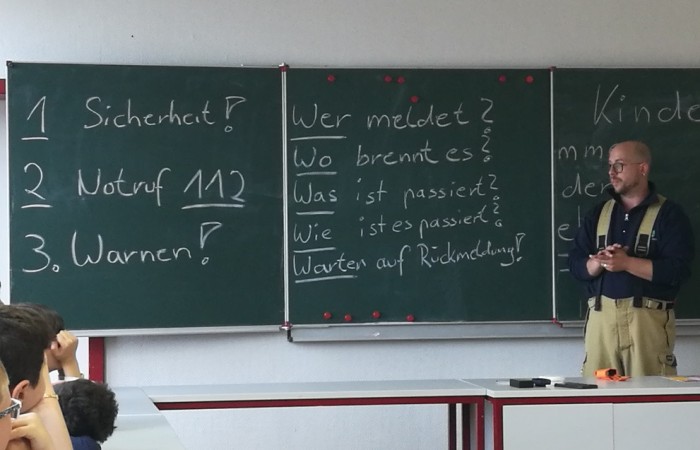 1 Sicherheit!
2 Notruf 112
3. Warnen!
Wer meldet?
Wo brennt es?
Was ist passiert?
Wie ist es passiert?
Warten auf Rückmeldung!
Kinde
mm
der